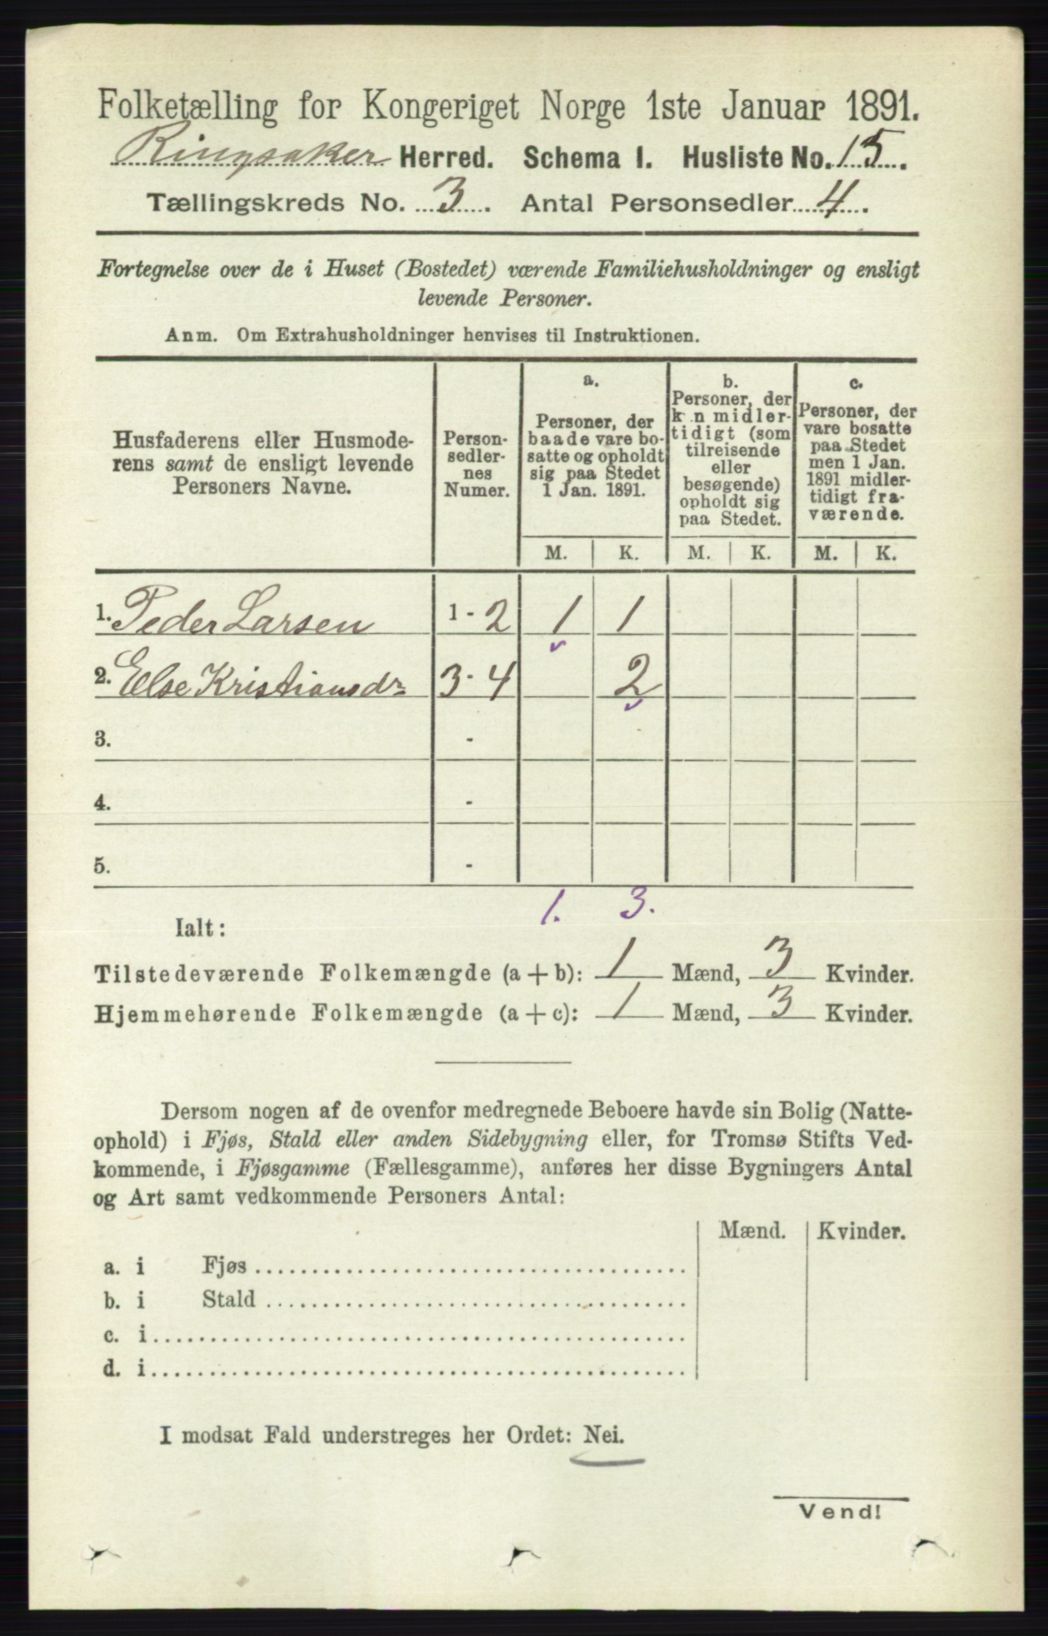 Folketælling for Kongeriget Norge 1ste Januar 1891.
Ringsaker Herred. Schema 1. Husliste No. 15.
Tællingskreds No. 3. Antal Personsedler 4.
Fortegnelse over de i Huset (Bostedet) værende Familiehusholdninger og ensligt
levende Personer.
Anm. Om Extrahusholdninger henvises til Instruktionen.
Husfaderens eller Husmode-
rens samt de ensligt levende
Personers Navne.
Person-
sedler-
nes
Numer.
a.
Personer, der
baade vare bo-
satte og opholdt
sig paa Stedet
1 Jan. 1891.
b.
Personer, der
k n midler-
tidigt (som
tilreisende
eller
besøgende)
opholdt sig
paa Stedet.
c.
Personer, der
vare bosatte
paa Stedet
men 1 Jan.
1891 midler-
tidigt fra-
værende.
M. K. M. K. M. K.
1. Peder Larsen 1-2 1 1
2. Else Kristiansdr 3-4 2
3. -
4. -
5. -
1. 3.
Ialt:
Tilstedeværende Folkemængde (a+b): 1 Mænd, 3 Kvinder.
Hjemmehørende Folkemængde (a+c): 1 Mænd, 3 Kvinder.
Dersom nogen af de ovenfor medregnede Beboere havde sin Bolig (Natte-
ophold) i Fjøs, Stald eller anden Sidebygning eller, for Tromsø Stifts Ved-
kommende, i Fjøsgamme (Fællesgamme), anføres her disse Bygningers Antal
og Art samt vedkommende Personers Antal:
Mænd. Kvinder.
a. i Fjøs
b. i Stald
c. i
d. i
I modsat Fald understreges her Ordet: Nei.
Vend!